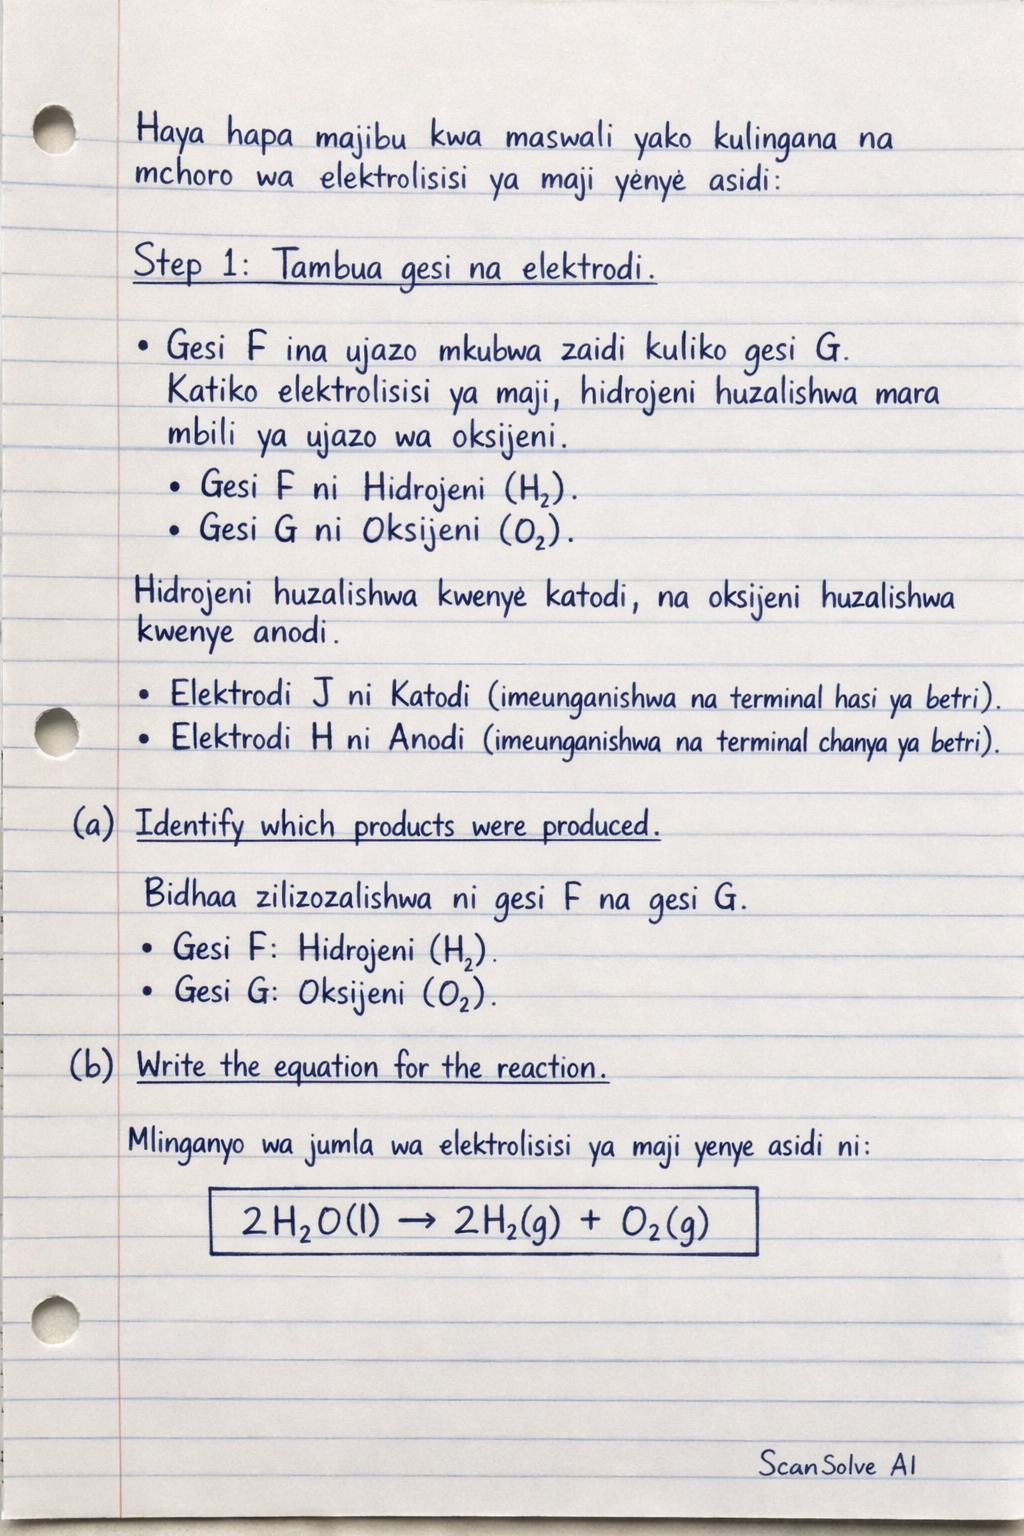 Haya hapa majibu kwa maswali yako kulingana na
mchoro wa elektrolisisi ya maji yėnyė asidi:
Step 1: Tambua gesi na elektrodi.
• Gesi F ina ujazo mkubwa zaidi kuliko gesi G.
Katiko elektrolisisi ya maji, hidrojeni huzalishwa mara
mbili ya ujazo wa oksijeni.
• Gesi F ni Hidrojeni (H₂).
• Gesi G ni Oksijeni (O₂).
Hidrojeni huzalishwa kwenyė katodi, na oksijeni huzalishwa
kwenye anodi.
• Elektrodi J ni Katodi (imeunganishwa na terminal hasi ya betri).
• Elektrodi H ni Anodi (imeunganishwa na terminal chanya ya betri).
(a) Identify which products were produced.
Bidhaa zilizozalishwa ni gesi F na gesi G.
• Gesi F: Hidrojeni (H₂).
• Gesi G: Oksijeni (O₂).
(b) Write the equation for the reaction.
Mlinganyo wa jumla wa elektrolisisi ya maji yenye asidi ni:
2H₂O(l) → 2H₂(g) + O₂(g)
ScanSolve AI